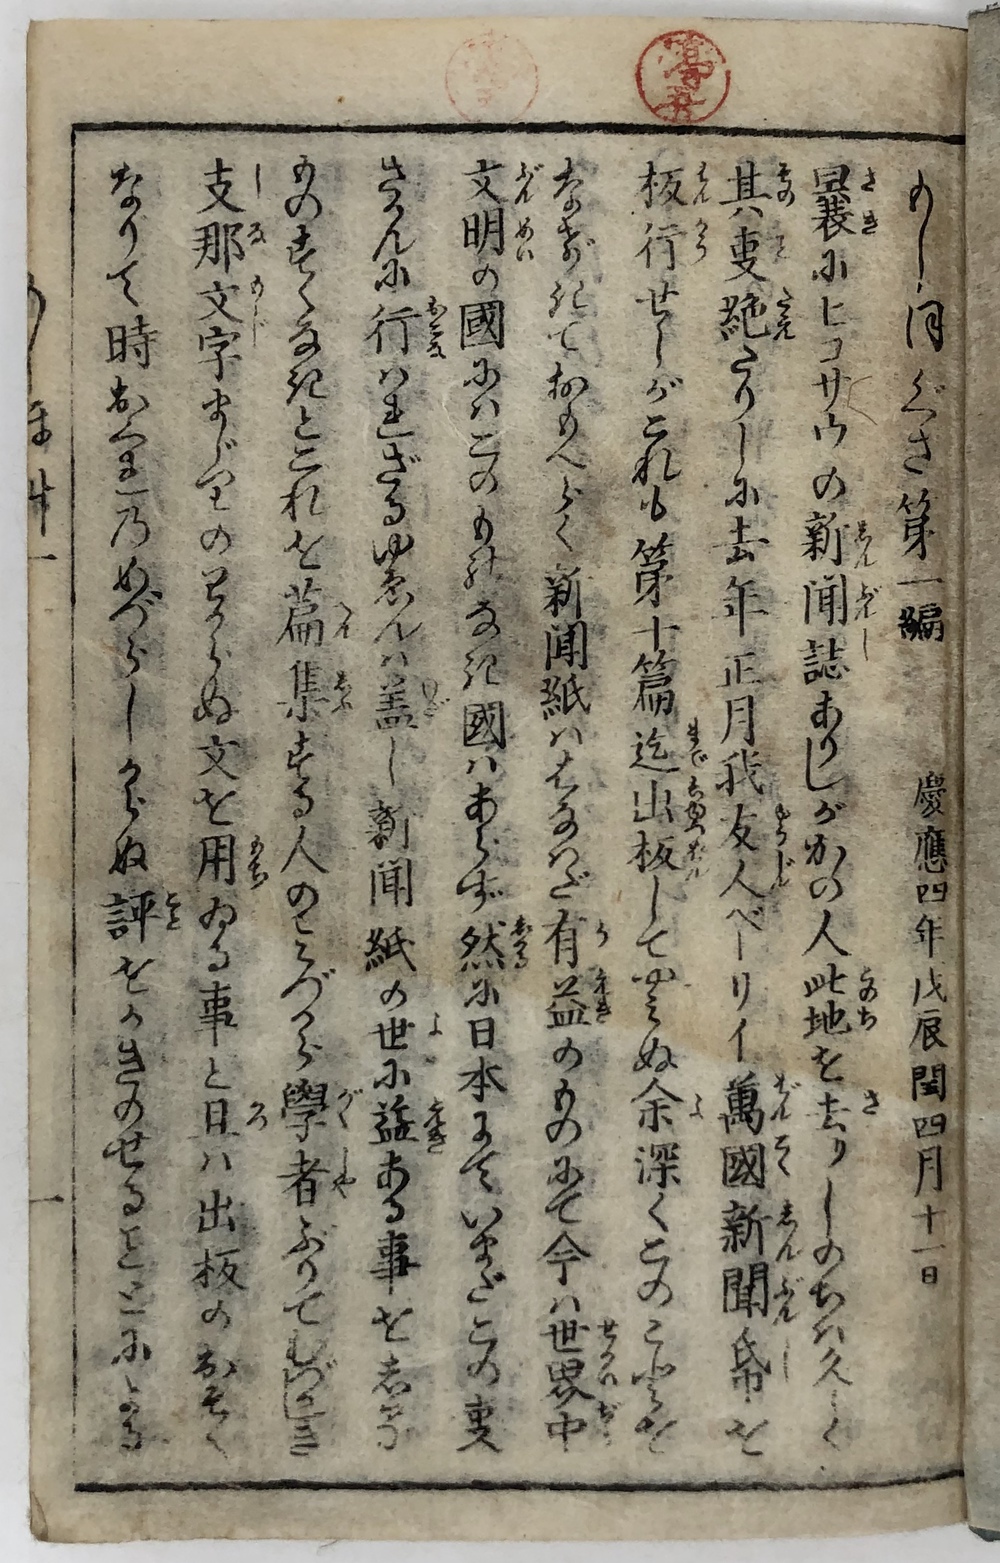 もしほぐさ第一編 慶應四年戊辰閏四月十一日
曩にヒコサウの新聞誌ありしがかの人此地を去りしのちハ久しく
其事絶たりしに去年正月我友人ベーリイ萬國新聞帋を
板行せしがこれも第十篇迄出板してやみぬ余深くこのことを
なげきておもへらく新聞紙ハはなハだ有益のものにて今ハ世界中
文明の國にハこのものなき國ハあらず然に日本にていまだこの事
さかんに行ハれざるゆゑんハ盖し新聞紙の世に益ある事を志る
ものすくなきとこれを篇集する人のみづから學者ぶりてむづかしき
支那文字まじりのわからぬ文を用ゐる事と且ハ出板のおそく
なりて時おくれのめづらしからぬ評をかきのせるとによる